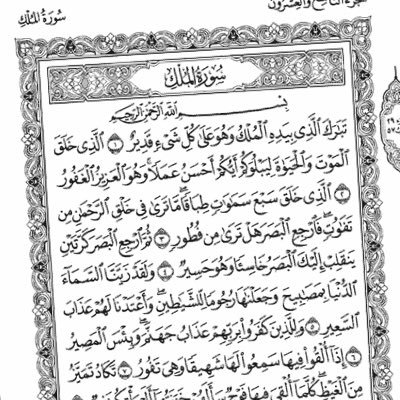 سُورَةُ المُلْكِ
الجُزْءُ التَّاسِعُ وَالعِشْرُونَ
سُورَةُ المُلْكِ
بِسْمِ اللَّهِ الرَّحْمَٰنِ الرَّحِيمِ
تَبَٰرَكَ ٱلَّذِي بِيَدِهِ ٱلْمُلْكُ وَهُوَ عَلَىٰ كُلِّ شَيْءٍ قَدِيرٌ ١ ٱلَّذِي خَلَقَ
ٱلْمَوْتَ وَٱلْحَيَوٰةَ لِيَبْلُوَكُمْ أَيُّكُمْ أَحْسَنُ عَمَلًا وَهُوَ ٱلْعَزِيزُ ٱلْغَفُورُ
٢ ٱلَّذِي خَلَقَ سَبْعَ سَمَٰوَٰتٍ طِبَاقًا مَّا تَرَىٰ فِي خَلْقِ ٱلرَّحْمَٰنِ مِن
تَفَٰوُتٍ فَٱرْجِعِ ٱلْبَصَرَ هَلْ تَرَىٰ مِن فُطُورٍ ٣ ثُمَّ ٱرْجِعِ ٱلْبَصَرَ كَرَّتَيْنِ
يَنقَلِبْ إِلَيْكَ ٱلْبَصَرُ خَاسِئًا وَهُوَ حَسِيرٌ ٤ وَلَقَدْ زَيَّنَّا ٱلسَّمَآءَ
ٱلدُّنْيَا بِمَصَٰبِيحَ وَجَعَلْنَٰهَا رُجُومًا لِّلشَّيَٰطِينِ وَأَعْتَدْنَا لَهُمْ عَذَابَ
ٱلسَّعِيرِ ٥ وَلِلَّذِينَ كَفَرُوا۟ بِرَبِّهِمْ عَذَابُ جَهَنَّمَ وَبِئْسَ ٱلْمَصِيرُ
٦ إِذَآ أُلْقُوا۟ فِيهَا سَمِعُوا۟ لَهَا شَهِيقًا وَهِيَ تَفُورُ ٧ تَكَادُ تَمَيَّزُ
مِنَ ٱلْغَيْظِ كُلَّمَآ أُلْقِيَ فِيهَا فَوْجٌ سَأَلَهُمْ خَزَنَتُهَآ أَلَمْ